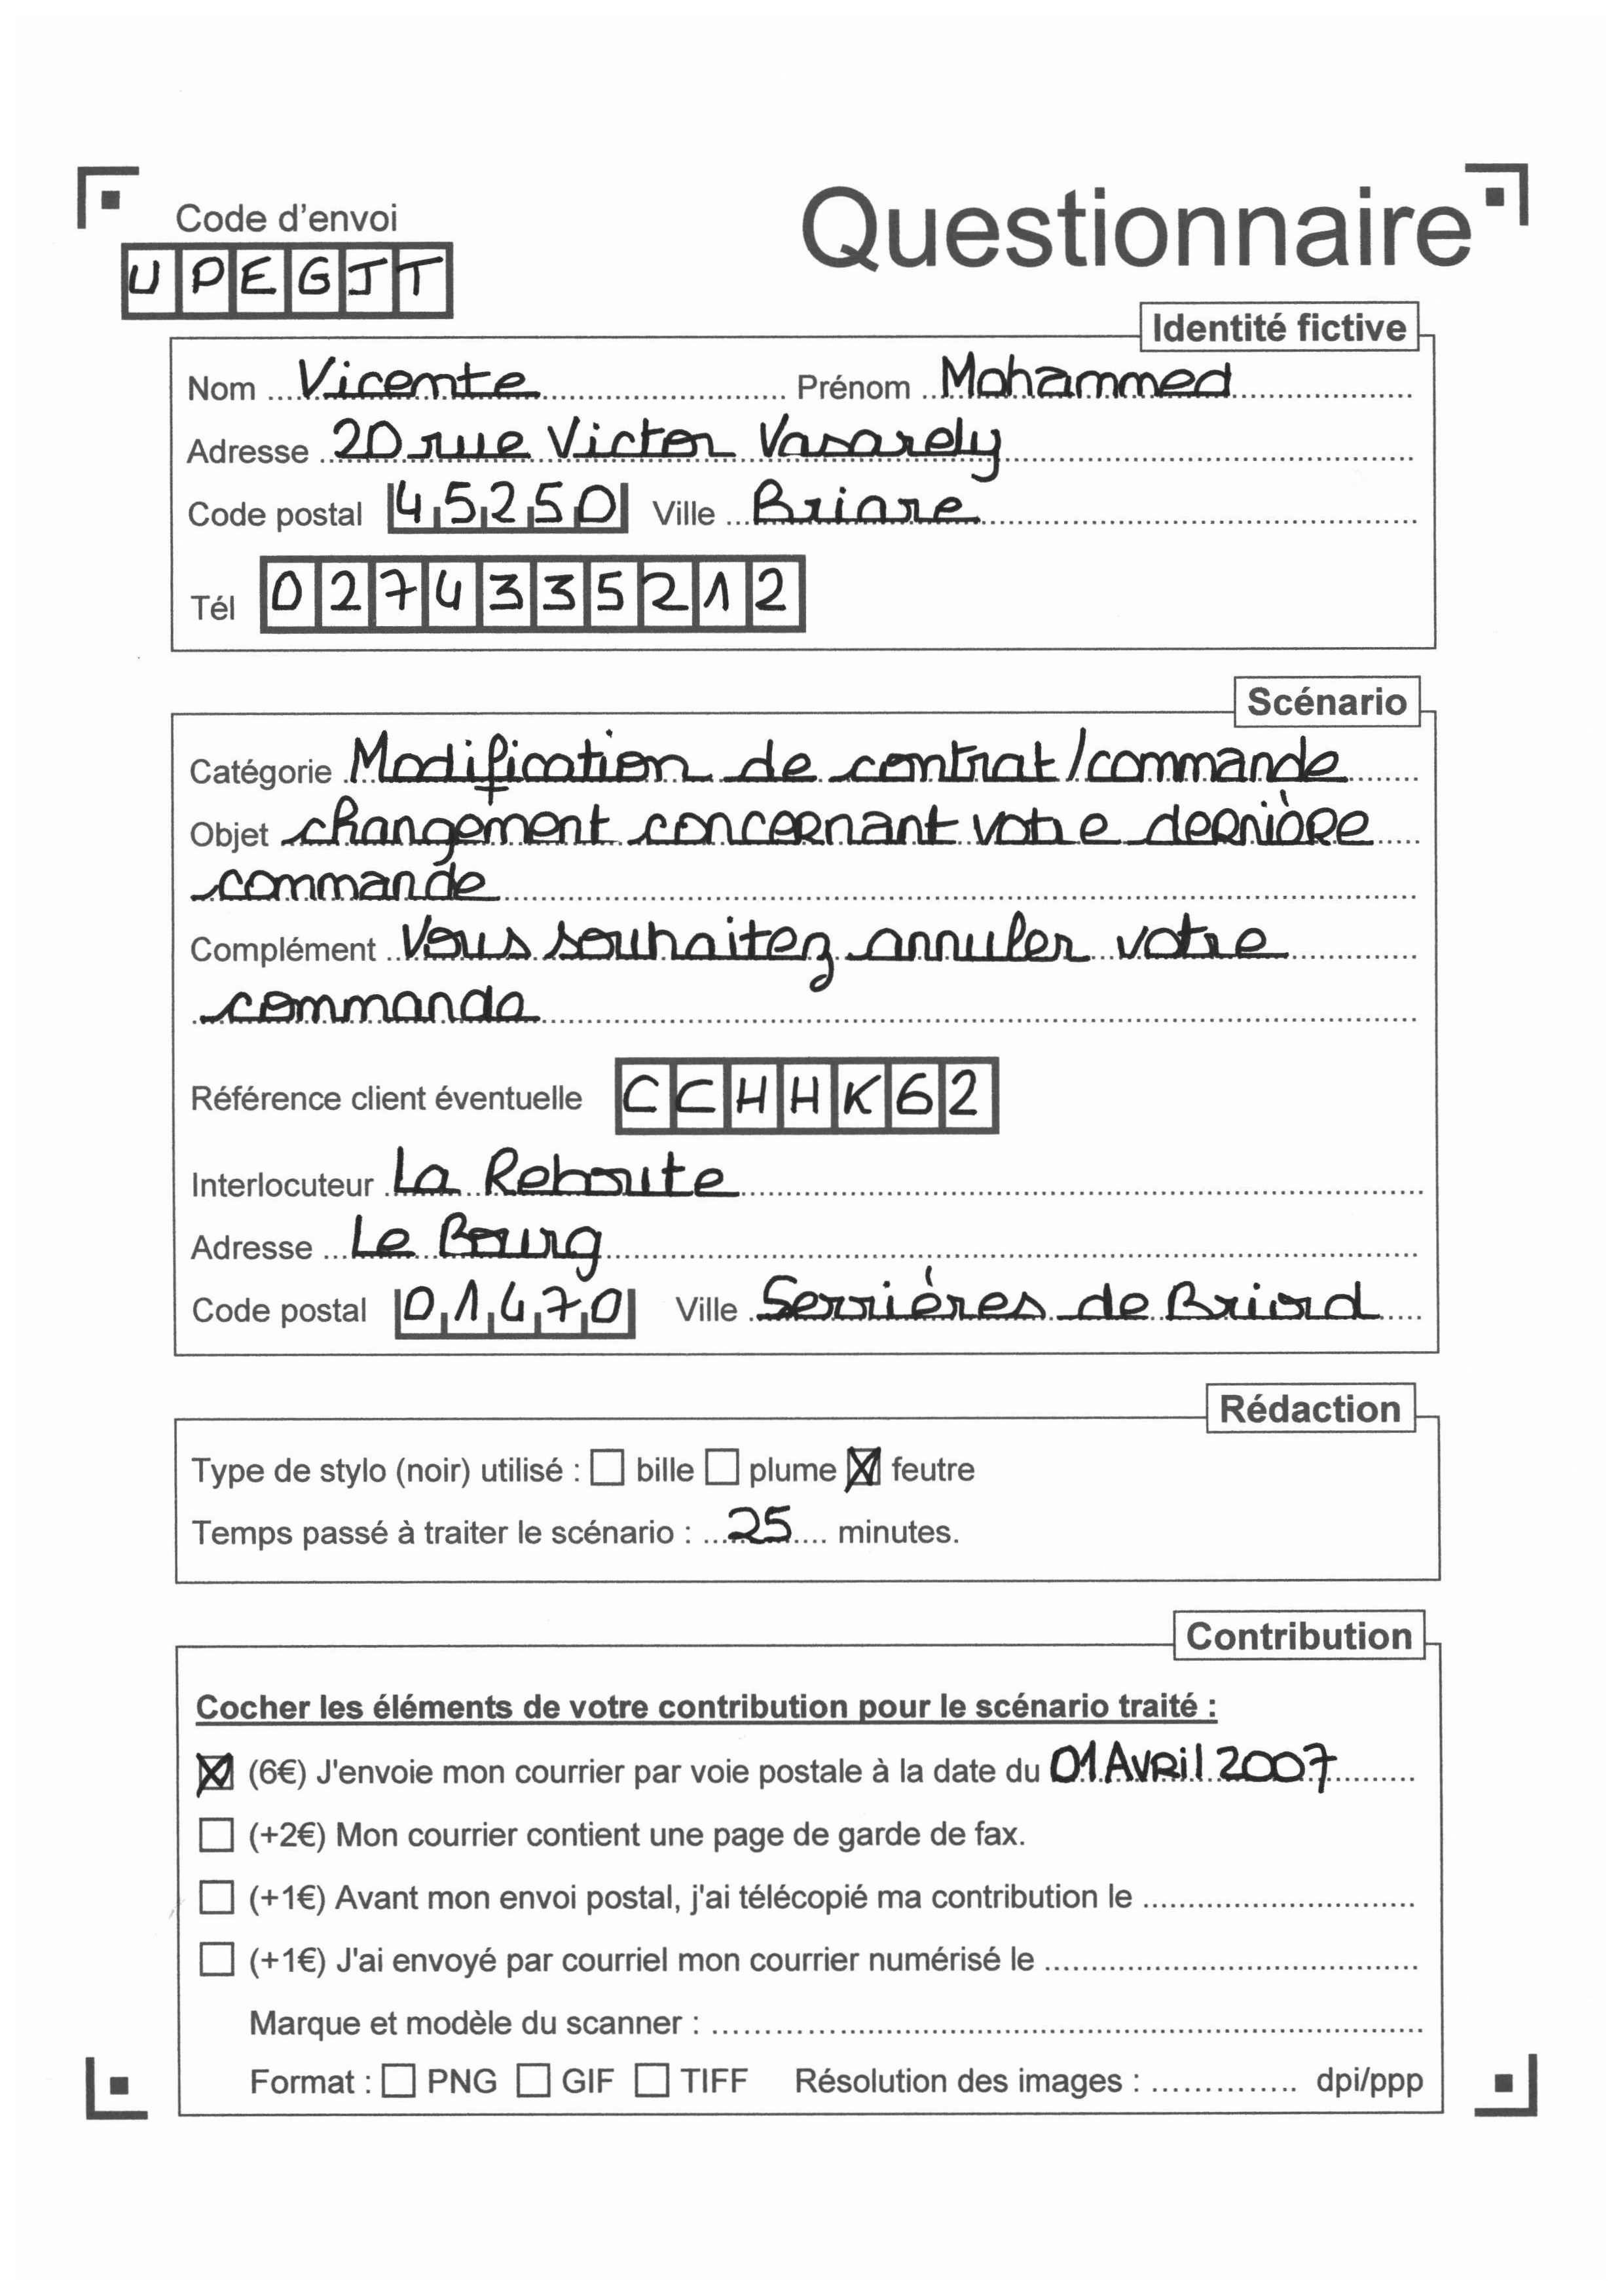 Code d'envoi
Questionnaire
UPEGJT
Identité fictive
Nom Vicente Prénom Mohammed
Adresse 20 rue Victor Vasarely
Code postal 45250 Ville Briare
Tél 0274335212
Scénario
Catégorie Modification de contrat/commande
Objet changement concernant votre dernière
commande
Complément Vous souhaitez annuler votre
commande
Référence client éventuelle CCHHK62
Interlocuteur La Reboute
Adresse Le Bourg
Code postal 01470 Ville Serrières de Briord
Rédaction
Type de stylo (noir) utilisé : ☐ bille ☐ plume ☒ feutre
Temps passé à traiter le scénario : 25 minutes.
Contribution
Cocher les éléments de votre contribution pour le scénario traité :
☒ (6€) J'envoie mon courrier par voie postale à la date du 01 Avril 2007
☐ (+2€) Mon courrier contient une page de garde de fax.
☐ (+1€) Avant mon envoi postal, j'ai télécopié ma contribution le
☐ (+1€) J'ai envoyé par courriel mon courrier numérisé le
Marque et modèle du scanner :
Format : ☐ PNG ☐ GIF ☐ TIFF Résolution des images : dpi/ppp